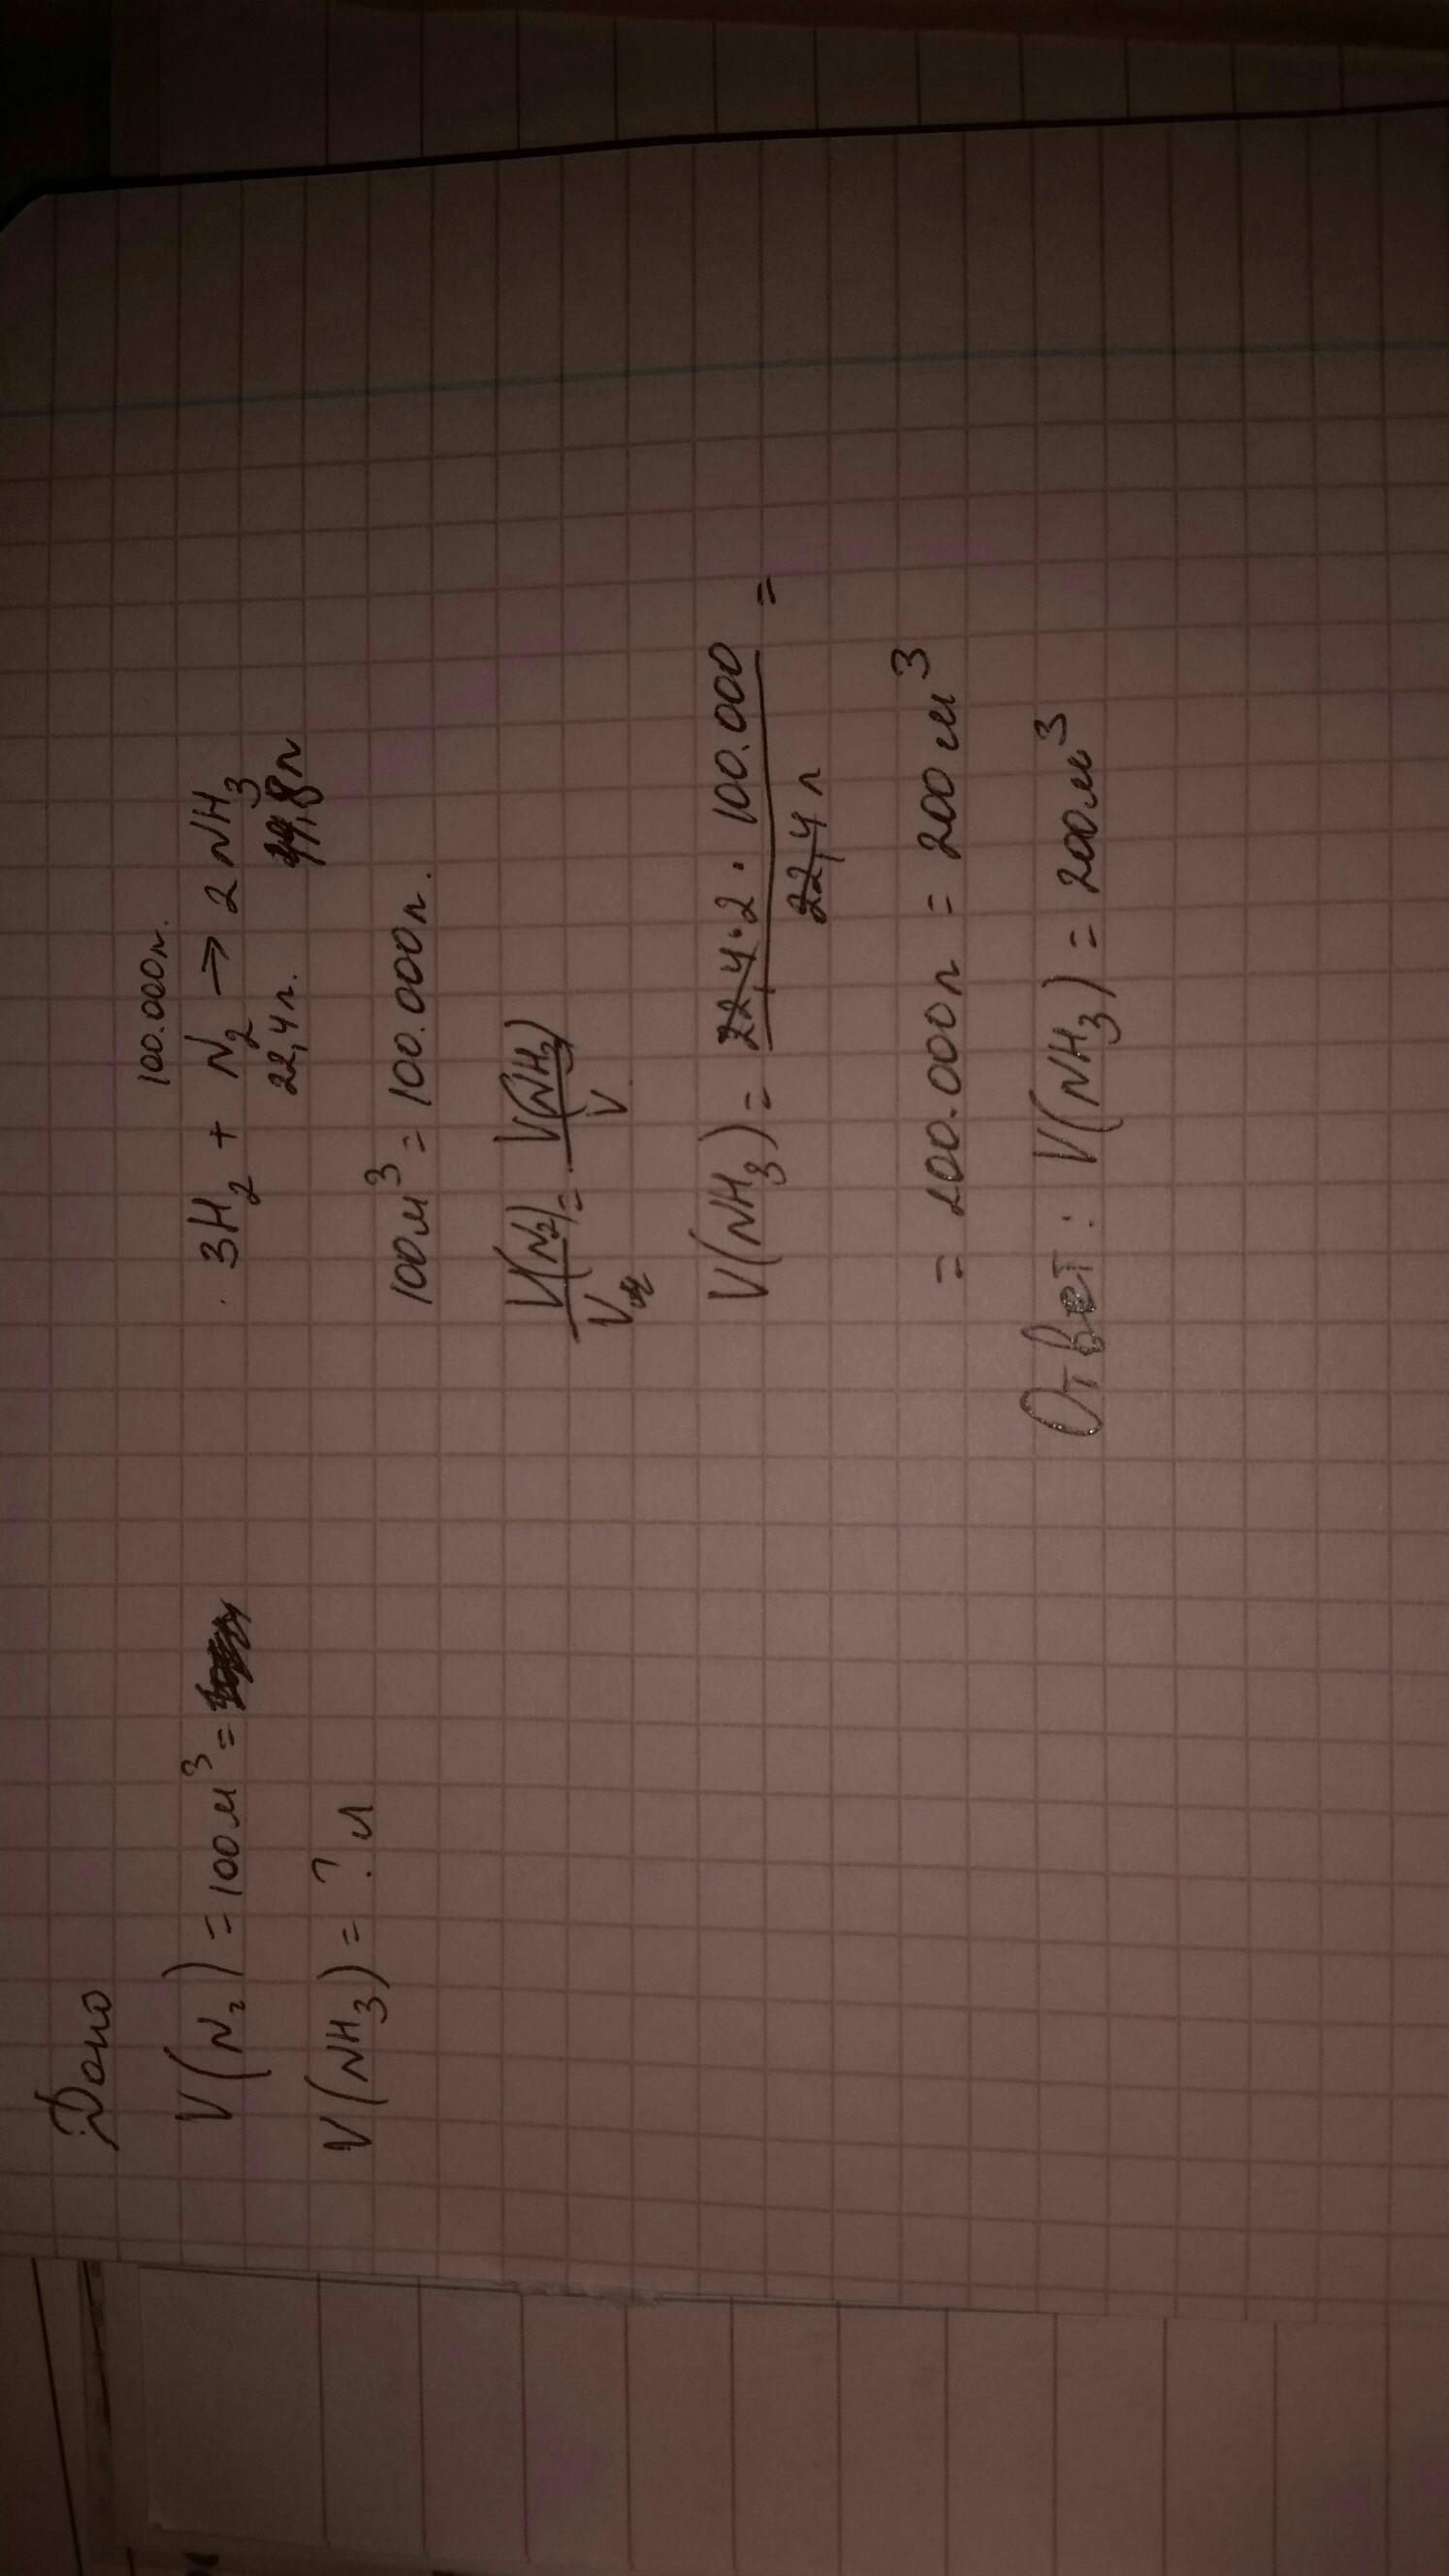 Дано
V(N₂) = 100 м³ =
V(NH₃) = ? л
100.000 л.
3H₂ + N₂ → 2NH₃
22,4 л. 44,8 л
100 м³ = 100.000 л.
V(N₂)/Vм = V(NH₃)/V
V(NH₃) = 22,4·2·100.000/22,4 л =
= 200.000 л = 200 м³
Ответ: V(NH₃) = 200 м³